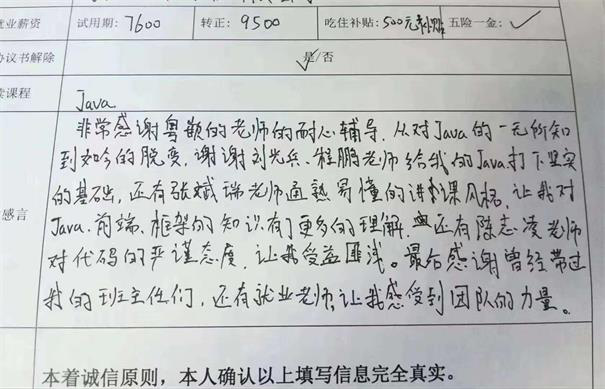 就业薪资 试用期：7600 转正：9500 吃住补贴：500元 五险一金：✓
协议书解除 是/否
读课程 Java
非常感谢粤嵌的老师的耐心辅导，从对Java的一无所知
到如今的蜕变，谢谢刘光兵、程鹏老师给我的Java打下坚实
的基础，还有张斌瑞老师通熟易懂的讲课风格，让我对
感言
Java、前端、框架的知识有了更多的理解，还有陈志凌老师
对代码的严谨态度，让我受益匪浅。最后感谢曾经带过
我的班主任们，还有就业老师，让我感受到团队的力量。
本着诚信原则，本人确认以上填写信息完全真实。